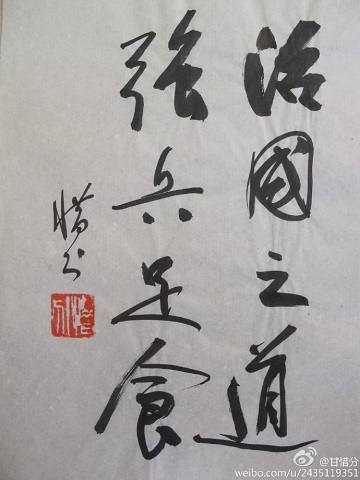 治國之道
張兵足食
惜书
@甘惜分
weibo.com/u/2435119351